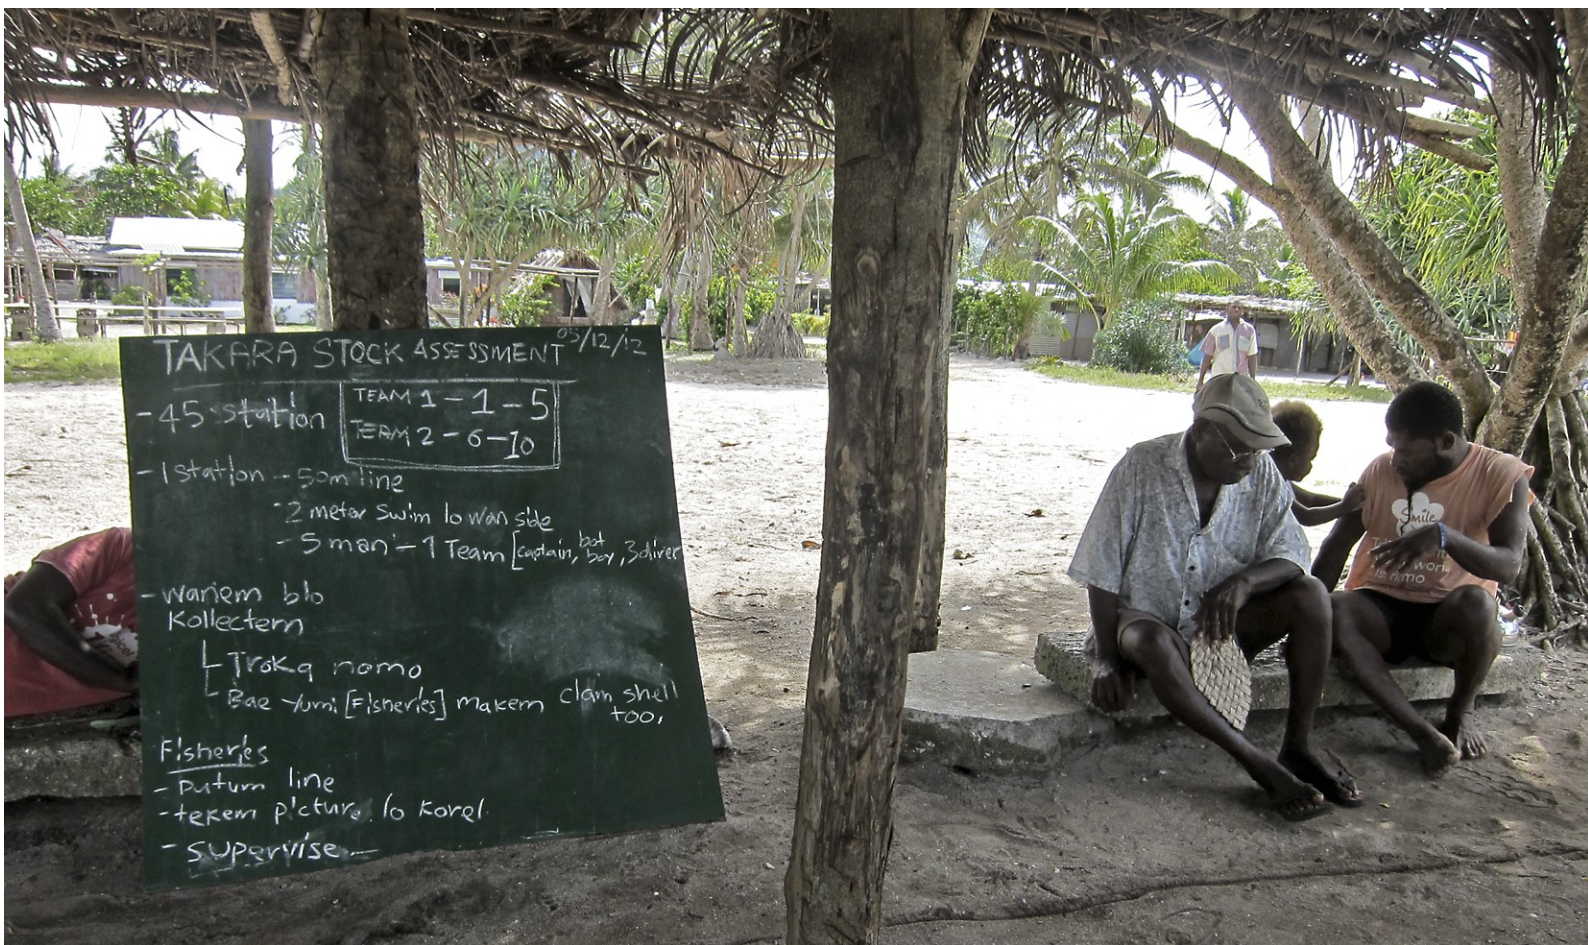 TAKARA STOCK ASSESSMENT 05/12/12
- 45 station
TEAM 1 - 1 - 5
TEAM 2 - 6 - 10
- 1 station - 50m line
- 2 meter swim lo wan side
- 5 man - 1 Team [captain, bot boy, 3 diver
- wanem blo
Kollectem
Troka nomo
Bae yumi [Fisheries] makem clam shell
too,
Fisheries
- putum line
- tekem picture lo korel
- supervise -
Smile